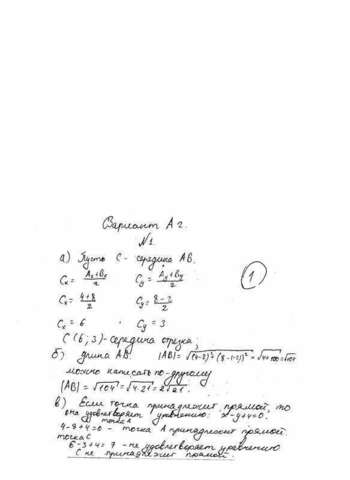 Вариант А 2.
№1.
а) Пусть С - середина АВ.
Cₓ = (Aₓ+Bₓ)/2 C_y = (A_y+B_y)/2
Cₓ = (4+8)/2 C_y = (8-2)/2
Cₓ = 6 C_y = 3
С (6; 3) - середина отрезка,
①
б) длина АВ. |AB| = √((4-8)²+(8-(-2))²) = √(4+100) = √104
можно написать по-другому
|AB| = √104 = √(4·21) = 2√21.
в) Если точка принадлежит прямой, то
она удовлетворяет уравнению: x-y+4=0.
точка А
4-8+4=0 - точка А принадлежит прямой
точка С
6-3+4=7 - не удовлетворяет уравнению
С не принадлежит прямой